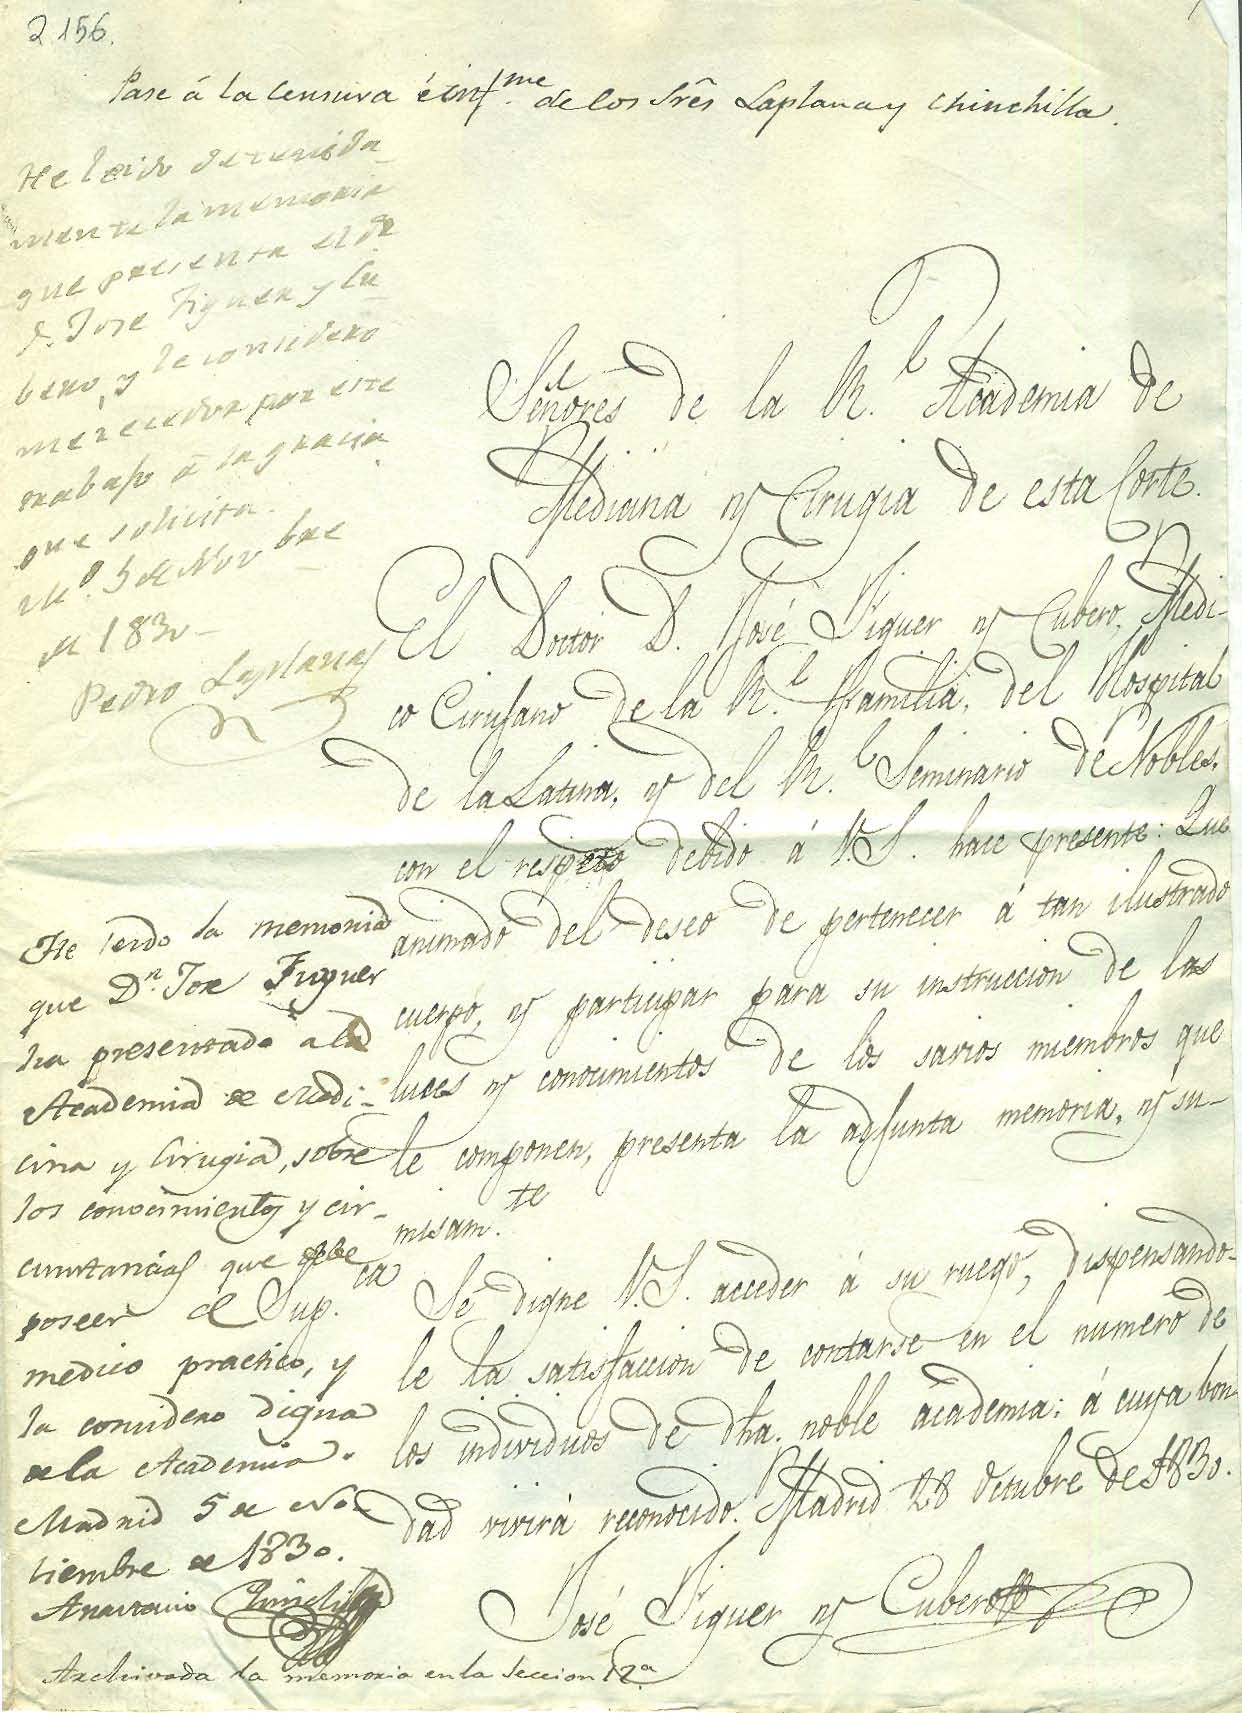 2156.
Pase á la censura é infme. de los Srês Laplana y Chinchilla.
He leido detenida-
mente la memoria
que presenta el Dr
D. Jose Figuer y Cu-
bero, y le considero
merecedor por este
trabajo á la gracia
que solicita.
Md. 5 de Novbre
de 1830-
Pedro Laplana
Señores de la Rl. Academia de
Medicina y Cirugia de esta Corte.
El Doctor D. José Figuer y Cubero, Medi-
co Cirujano de la Rl. Familia, del Hospital
de la Latina, y del Rl. Seminario de Nobles,
con el respeto debido á V.S. hace presente: Que
animado del deseo de pertenecer á tan ilustrado
cuerpo, y participar para su instruccion de las
luces y conocimientos de los savios miembros que
le componen, presenta la adjunta memoria, y su-
misamte.
Supca. Se digne V.S. acceder á su ruego, dispensando-
le la satisfaccion de contarse en el numero de
los individuos de dha. noble academia: á cuya bon-
dad vivirá reconocido. Madrid 28 octubre de 1830.
José Figuer y Cubero
He leido la memoria
que Dn. Jose Figuer
ha presentado a la
Academia de Medi-
cina y Cirugia, sobre
los conocimientos y cir-
cunstancias que debe
poseer el
medico practico, y
la considero digna
de la Academia.
Madrid 5 de No-
viembre de 1830.
Anastasio Chinchilla
Archivada la memoria en la seccion 12a.